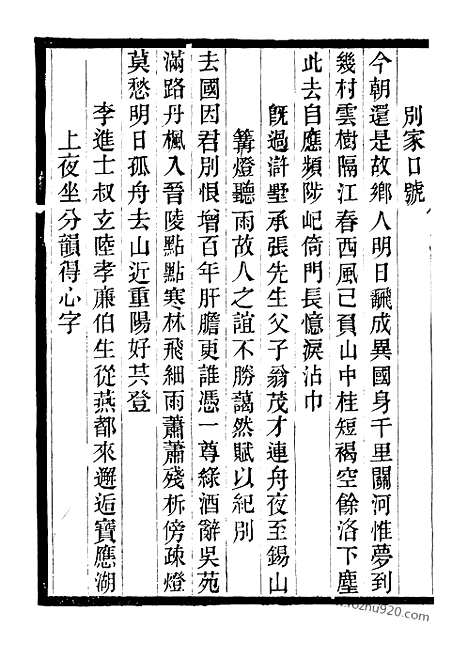 別家口號
今朝還是故鄉人明日飜成異國身千里關河惟夢到
幾村雲樹隔江春西風已負山中桂短褐空餘洛下塵
此去自應頻陟屺倚門長憶淚沾巾
旣過滸墅承張先生父子翁茂才連舟夜至錫山
篝燈聽雨故人之誼不勝藹然賦以紀別
去國因君別恨增百年肝膽更誰憑一尊綠酒辭吳苑
滿路丹楓入晉陵點點寒林飛細雨蕭蕭殘柝傍疎燈
莫愁明日孤舟去山近重陽好共登
李進士叔玄陸孝廉伯生從燕都來邂逅寶應湖
上夜坐分韻得心字